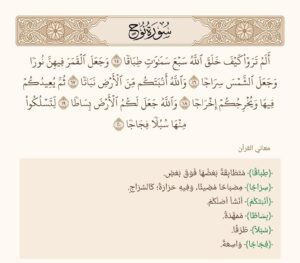 سُورَةُ نُوحٍ
أَلَمْ تَرَوْا۟ كَيْفَ خَلَقَ ٱللَّهُ سَبْعَ سَمَـٰوَٰتٍۢ طِبَاقًۭا ١٥ وَجَعَلَ ٱلْقَمَرَ فِيهِنَّ نُورًۭا
وَجَعَلَ ٱلشَّمْسَ سِرَاجًۭا ١٦ وَٱللَّهُ أَنۢبَتَكُم مِّنَ ٱلْأَرْضِ نَبَاتًۭا ١٧ ثُمَّ يُعِيدُكُمْ
فِيهَا وَيُخْرِجُكُمْ إِخْرَاجًۭا ١٨ وَٱللَّهُ جَعَلَ لَكُمُ ٱلْأَرْضَ بِسَاطًۭا ١٩ لِّتَسْلُكُوا۟
مِنْهَا سُبُلًۭا فِجَاجًۭا ٢٠
معاني القرآن
﴿طِبَاقًا﴾: مُتَطَابِقَةً بَعْضُهَا فَوْقَ بَعْضٍ.
﴿سِرَاجًا﴾: مِصْبَاحًا مُضِيئًا، وَفِيهِ حَرَارَةٌ؛ كَالسِّرَاجِ.
﴿أَنْبَتَكُمْ﴾: أَنْشَأَ أَصْلَكُمْ.
﴿بِسَاطًا﴾: مُمَهَّدَةً.
﴿سُبُلًا﴾: طُرُقًا.
﴿فِجَاجًا﴾: وَاسِعَةً.